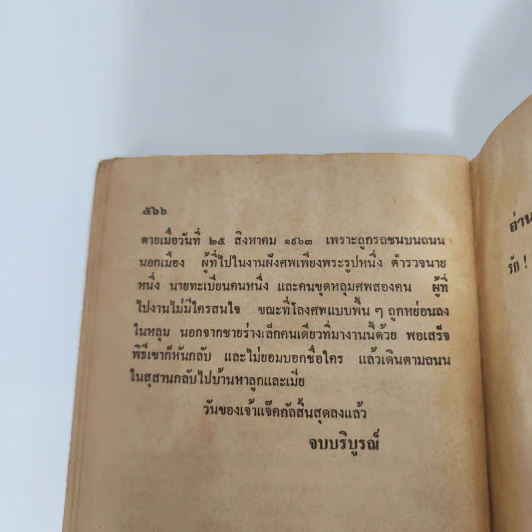 ๕๖๖
ตายเมื่อวันที่ ๒๕ สิงหาคม ๑๙๖๓ เพราะถูกรถชนบนถนน
นอกเมือง ผู้ที่ไปในงานฝังศพเพียงพระรูปหนึ่ง ตำรวจนาย
หนึ่ง นายทะเบียนคนหนึ่ง และคนขุดหลุมศพสองคน ผู้ที่
ไปงานไม่มีใครสนใจ ขณะที่โลงศพแบบพื้น ๆ ถูกหย่อนลง
ในหลุม นอกจากชายร่างเล็กคนเดียวที่มางานนี้ด้วย พอเสร็จ
พิธีเขาก็หันกลับ และไม่ยอมบอกชื่อใคร แล้วเดินตามถนน
ในสุสานกลับไปบ้านหาลูกและเมีย
วันของเจ้าแจ๊คกัลสิ้นสุดลงแล้ว
จบบริบูรณ์
อ่าน
รัก !